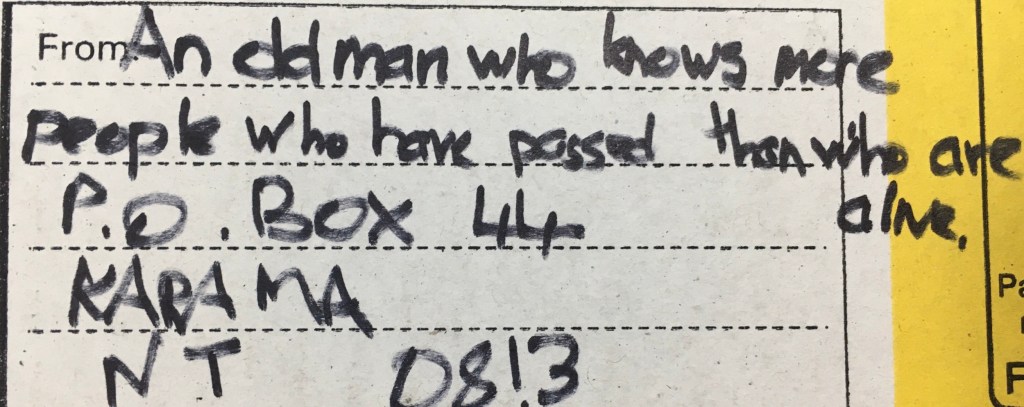 From An old man who knows more
people who have passed than who are
alive.
P.O. BOX 44
KARAMA
NT 0813
Pa
F